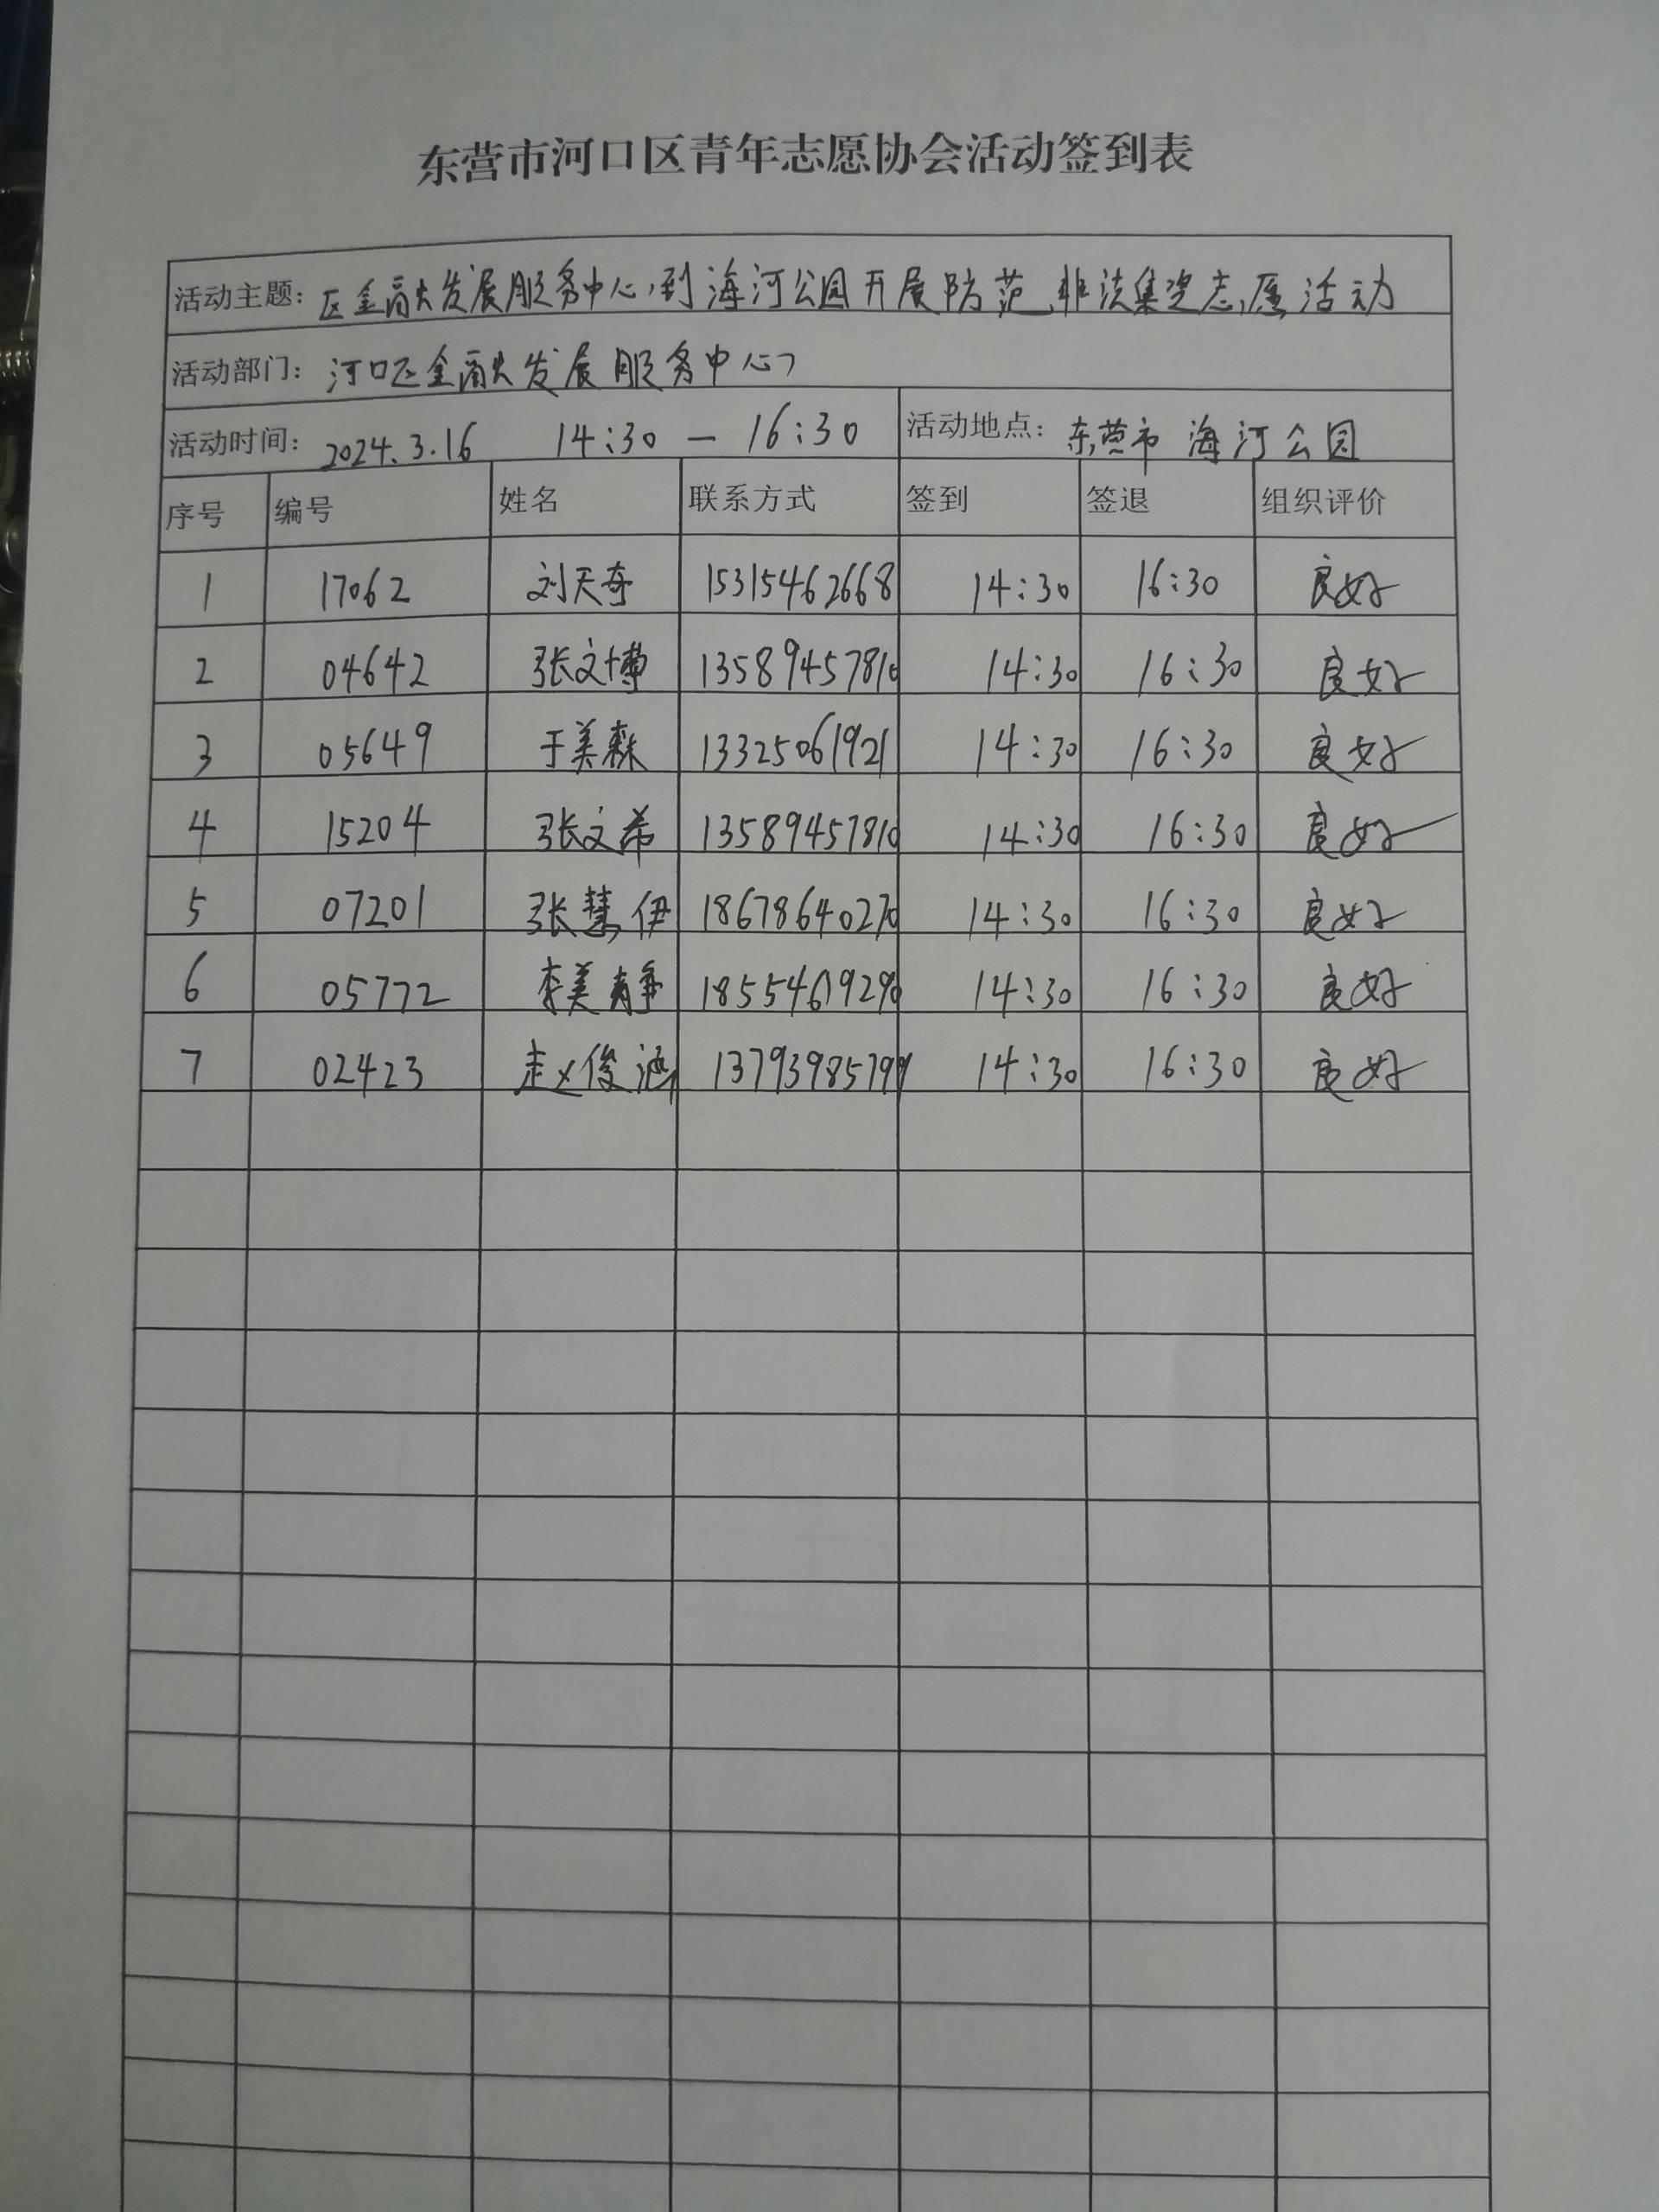 东营市河口区青年志愿协会活动签到表
活动主题：区金融发展服务中心到海河公园开展防范非法集资志愿活动
活动部门：河口区金融发展服务中心
活动时间：2024.3.16 14:30 — 16:30 活动地点：东营市 海河公园
序号 编号 姓名 联系方式 签到 签退 组织评价
1 17062 刘天奇 15315462668 14:30 16:30 良好
2 04642 张文博 13589457810 14:30 16:30 良好
3 05649 于美森 13325061921 14:30 16:30 良好
4 15204 张文希 13589457810 14:30 16:30 良好
5 07201 张慧伊 18678640270 14:30 16:30 良好
6 05772 李美静 18554619290 14:30 16:30 良好
7 02423 赵俊涵 13793985799 14:30 16:30 良好